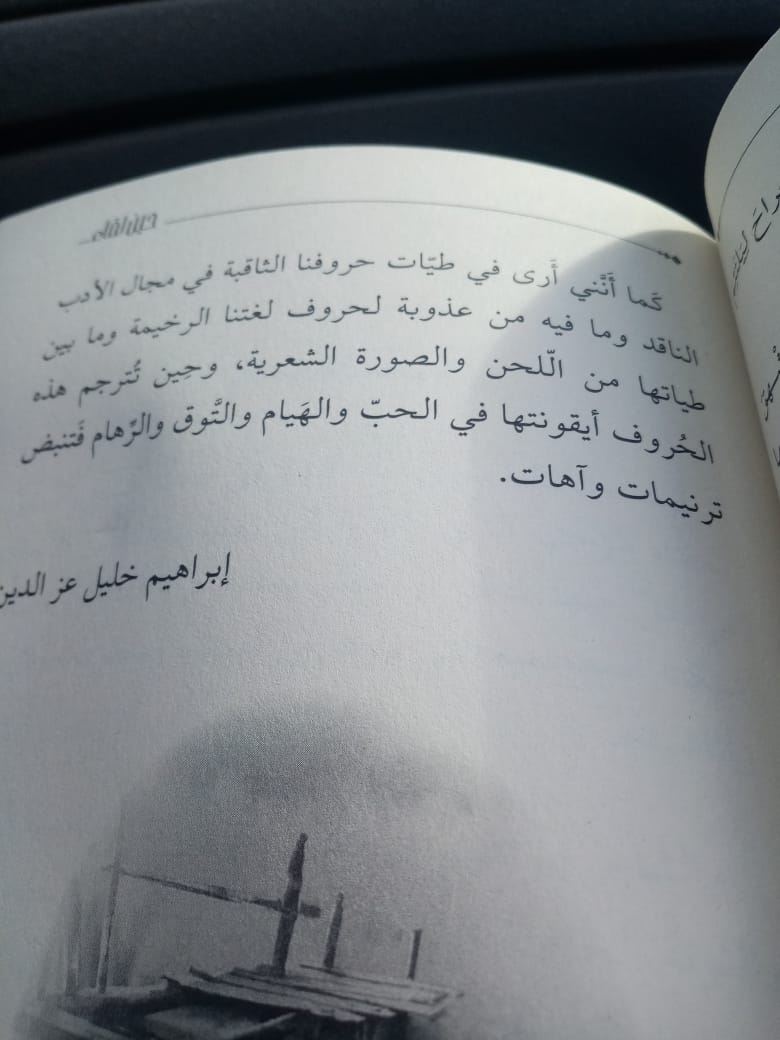 كَما أَنَّني أَرى في طيّات حروفنا الثاقبة في مجال الأدب
الناقد وما فيه من عذوبة لحروف لغتنا الرخيمة وما بين
طياتها من الّلحن والصورة الشعرية، وحِين تُترجم هذه
الحُروف أيقونتها في الحبّ والهَيام والتَّوق والرِّهام فَتنبض
ترنيمات وآهات.
إبراهيم خليل عز الدين